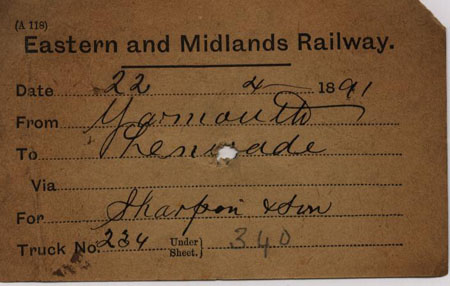 (A 118)
Eastern and Midlands Railway.
Date 22 4 1891
From Yarmouth
To Lenwade
Via
For Sharpin & Son
Truck No. 234 Under Sheet.} 340